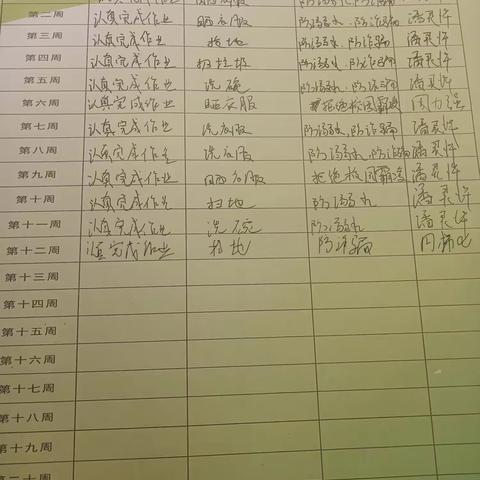 第二周 认真完成作业 晒衣服 防溺水、防诈骗 潘灵许
第三周 认真完成作业 扫地 防溺水、防诈骗 潘灵许
第四周 认真完成作业 扔垃圾 防溺水、防诈骗 潘灵许
第五周 认真完成作业 洗碗 防溺水、防诈骗 潘灵许
第六周 认真完成作业 晒衣服 拒绝校园霸凌 周力强
第七周 认真完成作业 洗衣服 防溺水、防诈骗 潘灵许
第八周 认真完成作业 洗衣服 防溺水、防诈骗 潘灵许
第九周 认真完成作业 晒衣服 拒绝校园霸凌 潘灵许
第十周 认真完成作业 扫地 防溺水 潘灵许
第十一周 认真完成作业 洗碗 防溺水 潘灵许
第十二周 认真完成作业 扫地 防诈骗
第十三周
第十四周
第十五周
第十六周
第十七周
第十八周
第十九周
第二十周